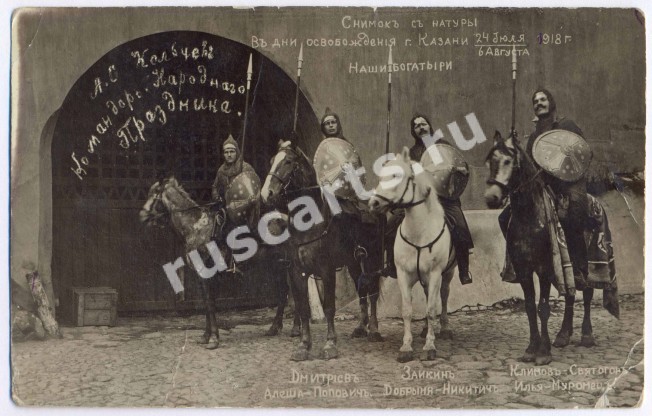 Снимокъ съ натуры
Въ дни освобожденія г. Казани 24 Іюля 1918 г
6 Августа
Наши богатыри
Командоръ Народнаго
Праздника.
ruscarts.ru
Дмитріевъ
Алеша-Поповичъ.
Заикинъ
Добрыня-Никитичъ.
Климовъ-Святогоръ
Илья-Муромецъ